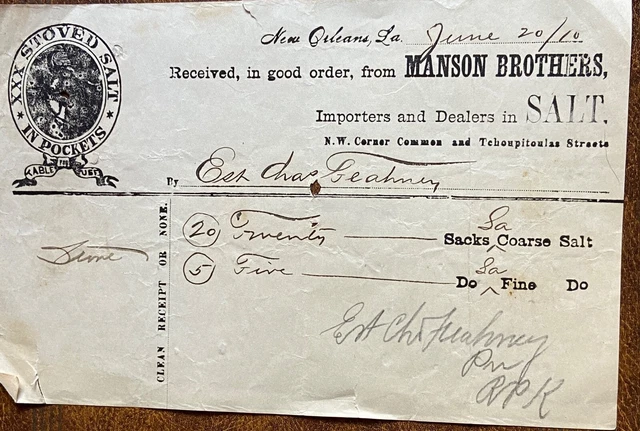 XXX STOVED SALT
IN POCKETS
FOR TABLE USE
New Orleans, La. June 20/10
Received, in good order, from MANSON BROTHERS,
Importers and Dealers in SALT.
N.W. Corner Common and Tchoupitoulas Streets
By Est Chas Feahney
CLEAN RECEIPT OR NONE.
20 Twenty Sacks La Coarse Salt
5 Five Do La Fine Do
Est Chs Feahney
Pr
RPK